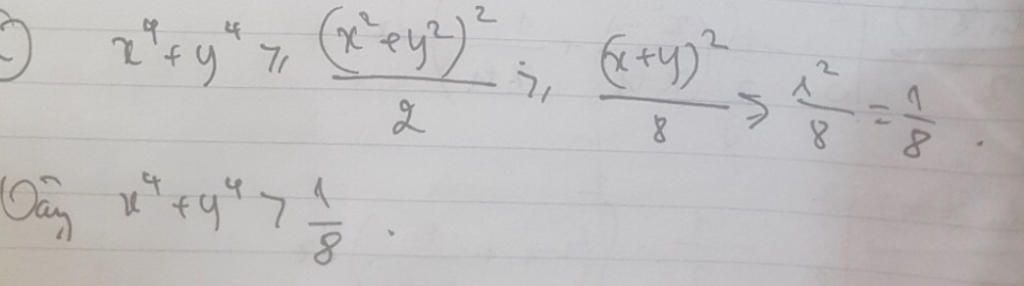 c) x⁴ + y⁴ ≥ (x² + y²)² / 2 ≥ (x + y)² / 8 ≥ 1² / 8 = 1 / 8 .
Vậy x⁴ + y⁴ > 1 / 8 .